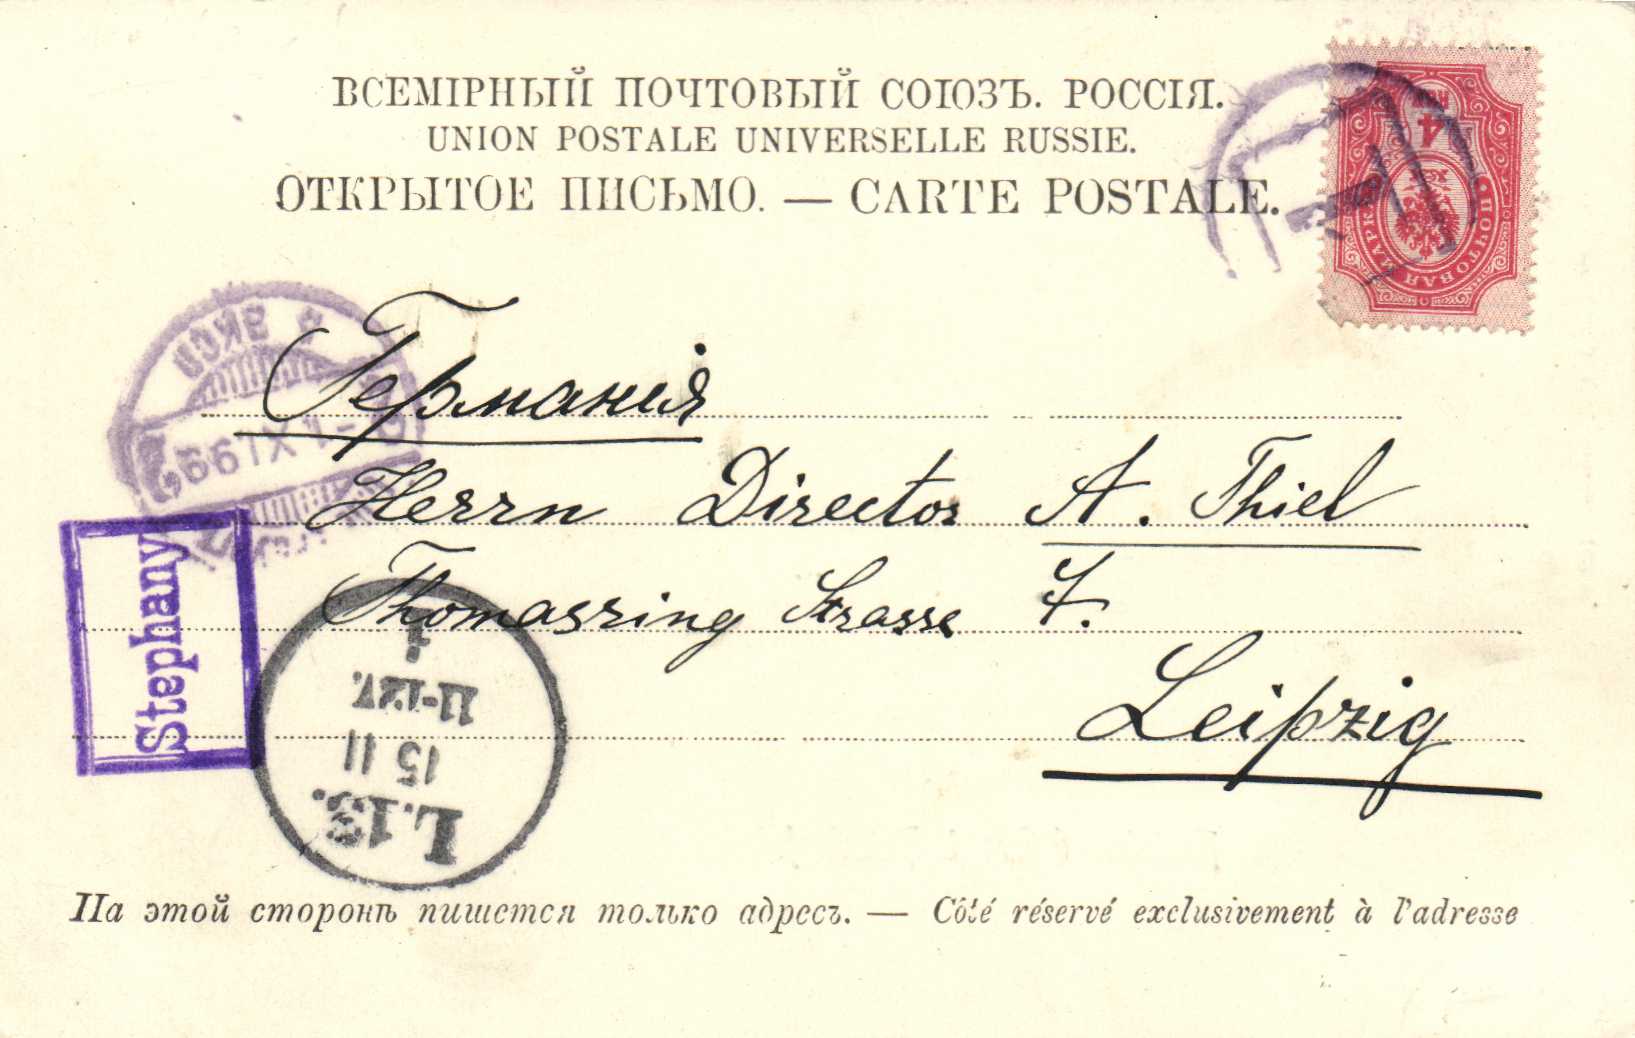 ВСЕМІРНЫЙ ПОЧТОВЫЙ СОЮЗЪ. РОССІЯ.
UNION POSTALE UNIVERSELLE RUSSIE.
ОТКРЫТОЕ ПИСЬМО. — CARTE POSTALE.
4
КОП
ПОЧТОВАЯ МАРКА
Германія
Herrn Director A. Thiel
Thomasring Strasse 7.
Leipzig
Stephany
L.13.
15 11
11-12V.
На этой сторонѣ пишется только адресъ. — Côté réservé exclusivement à l'adresse